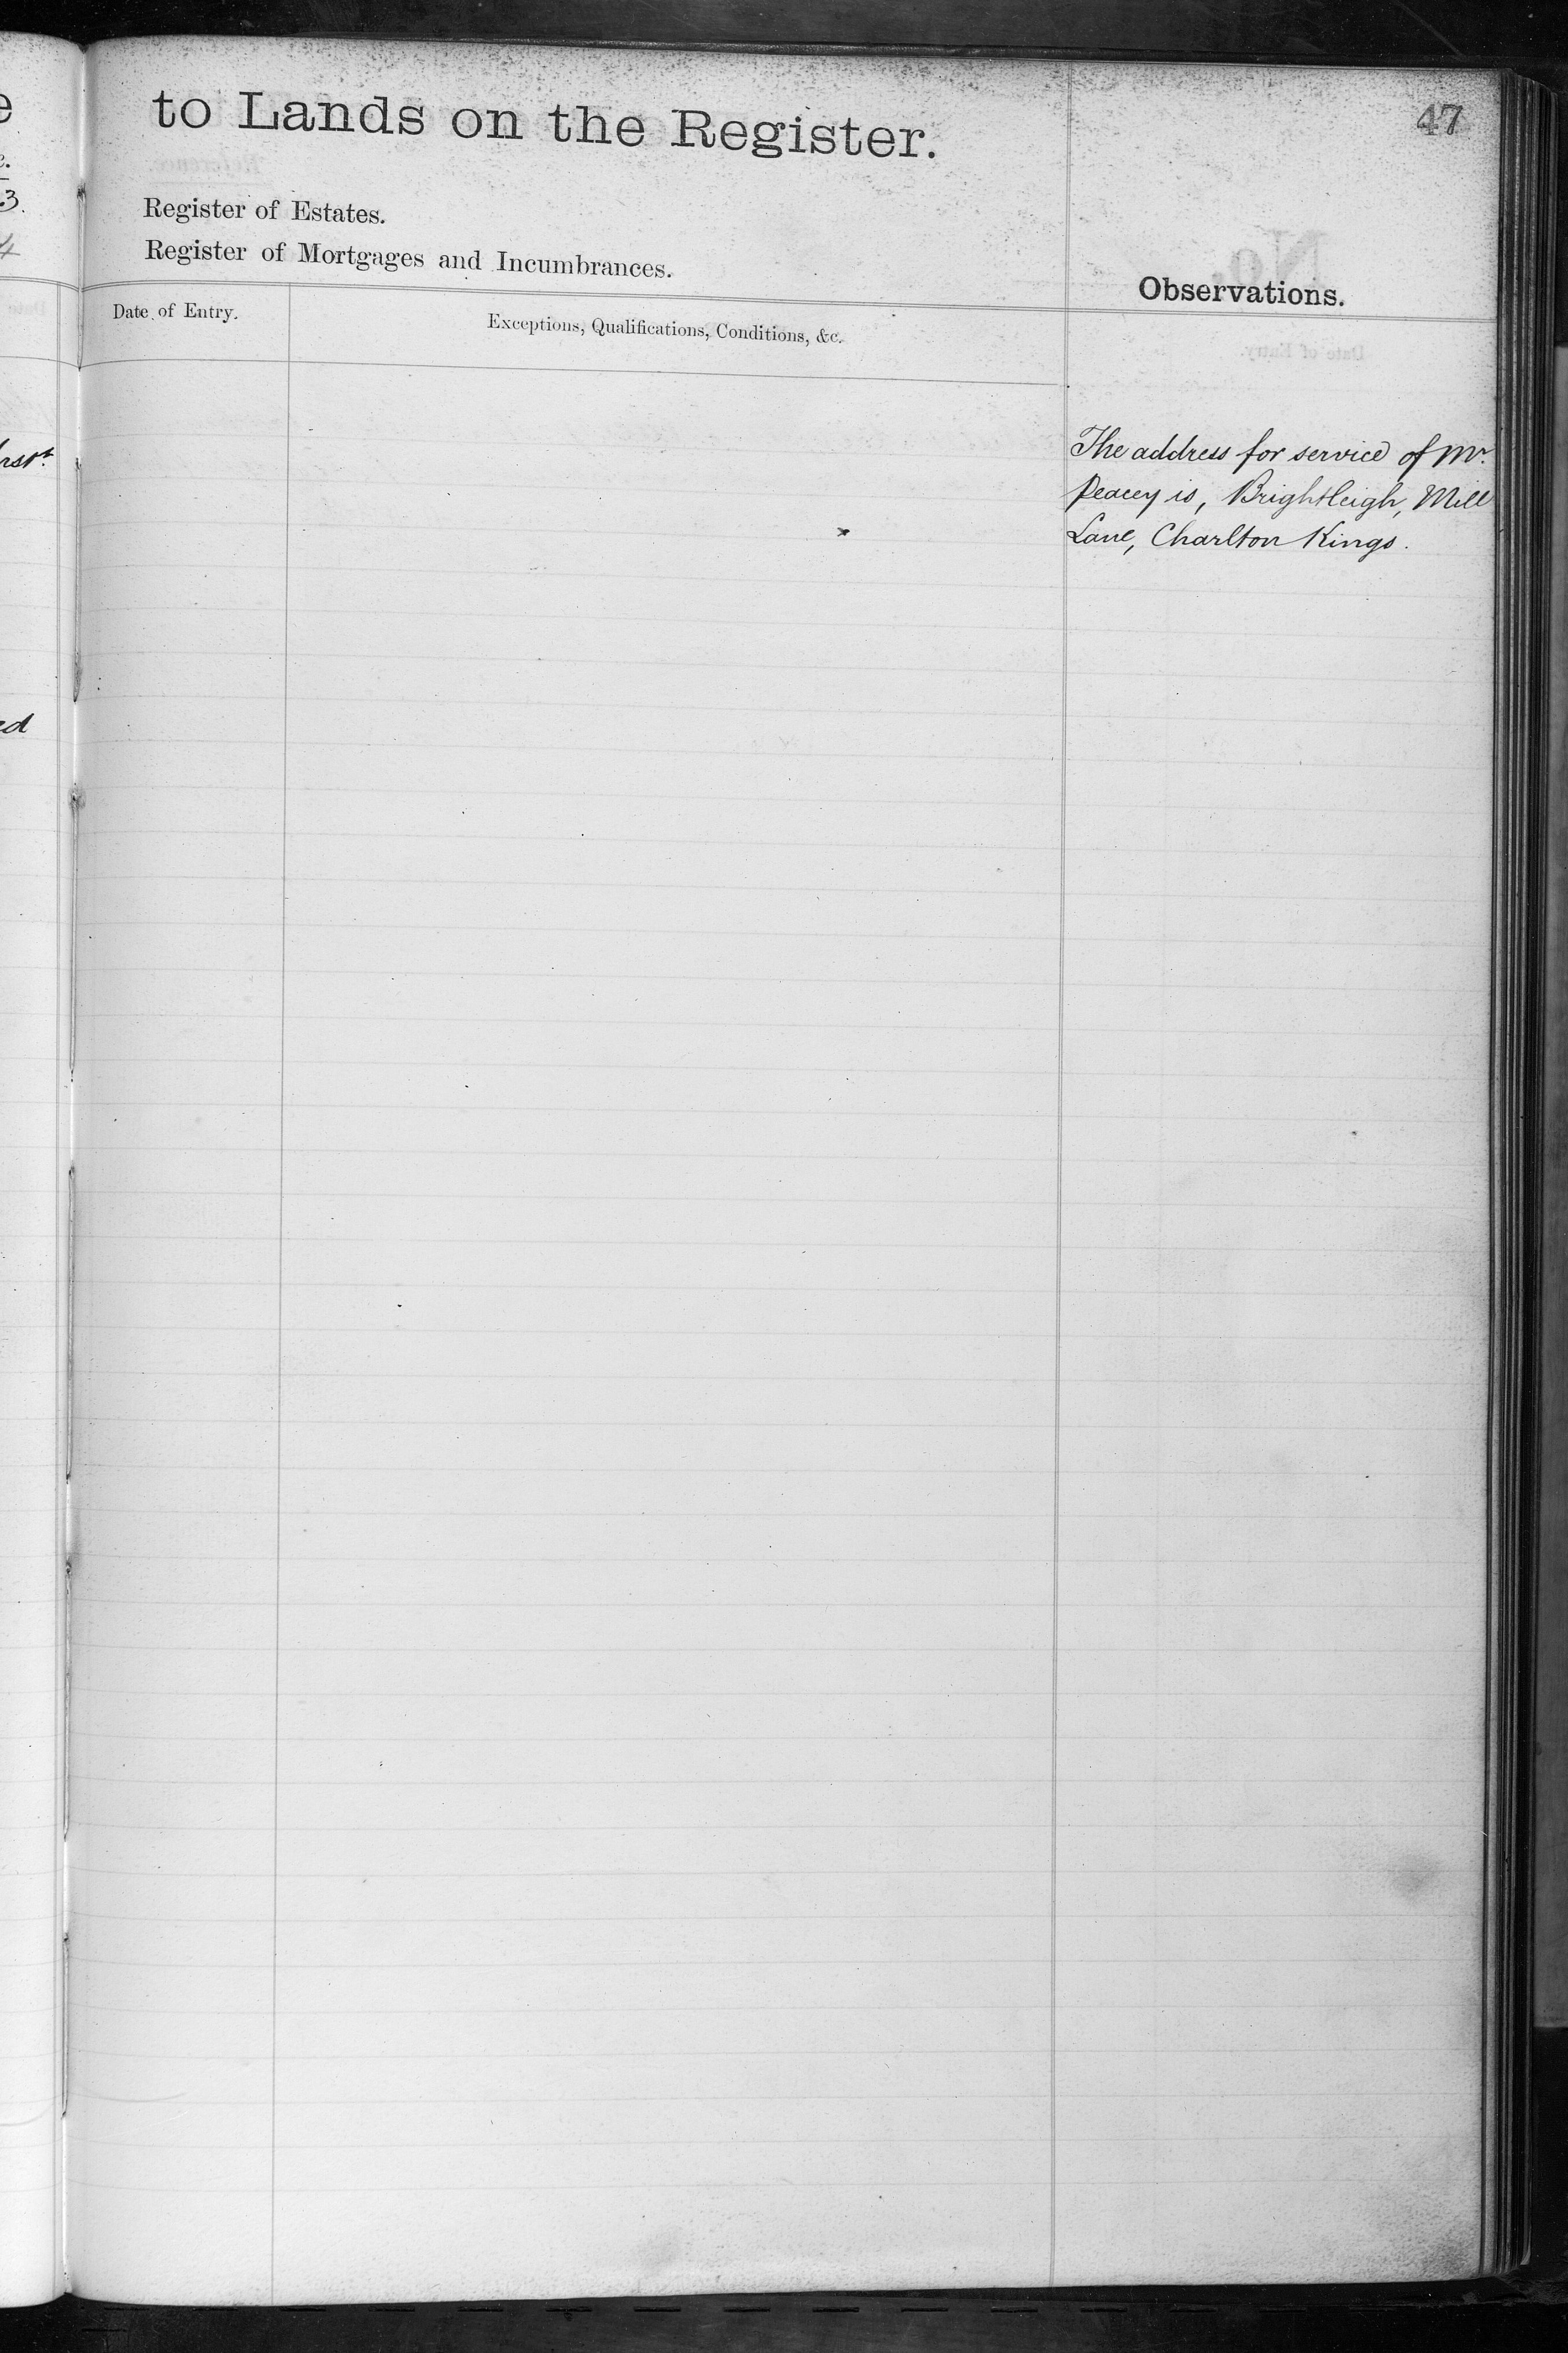 to Lands on the Register.
47
Register of Estates.
Register of Mortgages and Incumbrances.
Observations.
Date of Entry.
Exceptions, Qualifications, Conditions, &c.
The address for service of Mr.
Peacey is, Brightleigh, Mill
Lane, Charlton Kings.